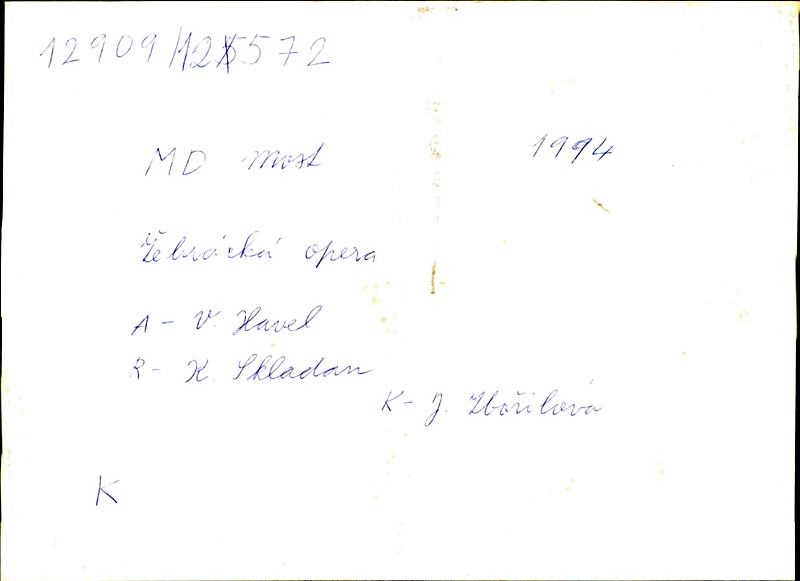 12909/125572
MD Most
1994
Žebrácká opera
A - V. Havel
R - K. Skladan
K - J. Zbořilová
K